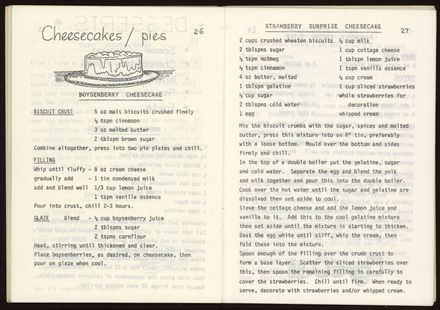 Cheesecakes / pies
26
BOYSENBERRY CHEESECAKE
BISCUIT CRUST 5 oz malt biscuits crushed finely
½ tspn cinnamon
3 oz melted butter
2 tblspn brown sugar
Combine altogether, press into two pie plates and chill.
FILLING
Whip until fluffy - 8 oz cream cheese
gradually add - 1 tin condensed milk
add and blend well 1/3 cup lemon juice
1 tspn vanilla essence
Pour into crust, chill 2-3 hours.
GLAZE Blend - ½ cup boysenberry juice
2 tblspns sugar
2 tspns cornflour
Heat, stirring until thickened and clear.
Place boysenberries, as desired, on cheesecake, then
pour on glaze when cool.
STRAWBERRY SURPRISE CHEESECAKE
27
2 cups crushed wheaten biscuits
2 tblspns sugar
tspn nutmeg
tspn cinnamon
4 oz butter, melted
1 tblspn gelatine
cup sugar
2 tblspns cold water
1 egg
cup milk
1 cup cottage cheese
1 tblspn lemon juice
1 tspn vanilla essence
cup cream
1 cup sliced strawberries
whole strawberries for
decoration
whipped cream
Mix the biscuit crumbs with the sugar, spices and melted
butter, press this mixture into an 8" tin, preferably
with a loose bottom. Mould over the bottom and sides
firmly and chill.
In the top of a double boiler put the gelatine, sugar
and cold water. Separate the egg and blend the yolk
and milk together and pour this into the double boiler.
Cook over the hot water until the sugar and gelatine are
dissolved then set aside to cool.
Sieve the cottage cheese and add the lemon juice and
vanilla to it. Add this to the cool gelatine mixture
then set aside until the mixture is starting to thicken.
Beat the egg white until stiff, whip the cream, then
fold these into the mixture.
Spoon enough of the filling over the crumb crust to
form a base layer. Scatter the sliced strawberries over
this, then spoon the remaining filling in carefully to
cover the strawberries. Chill until firm. When ready to
serve, decorate with strawberries and/or whipped cream.